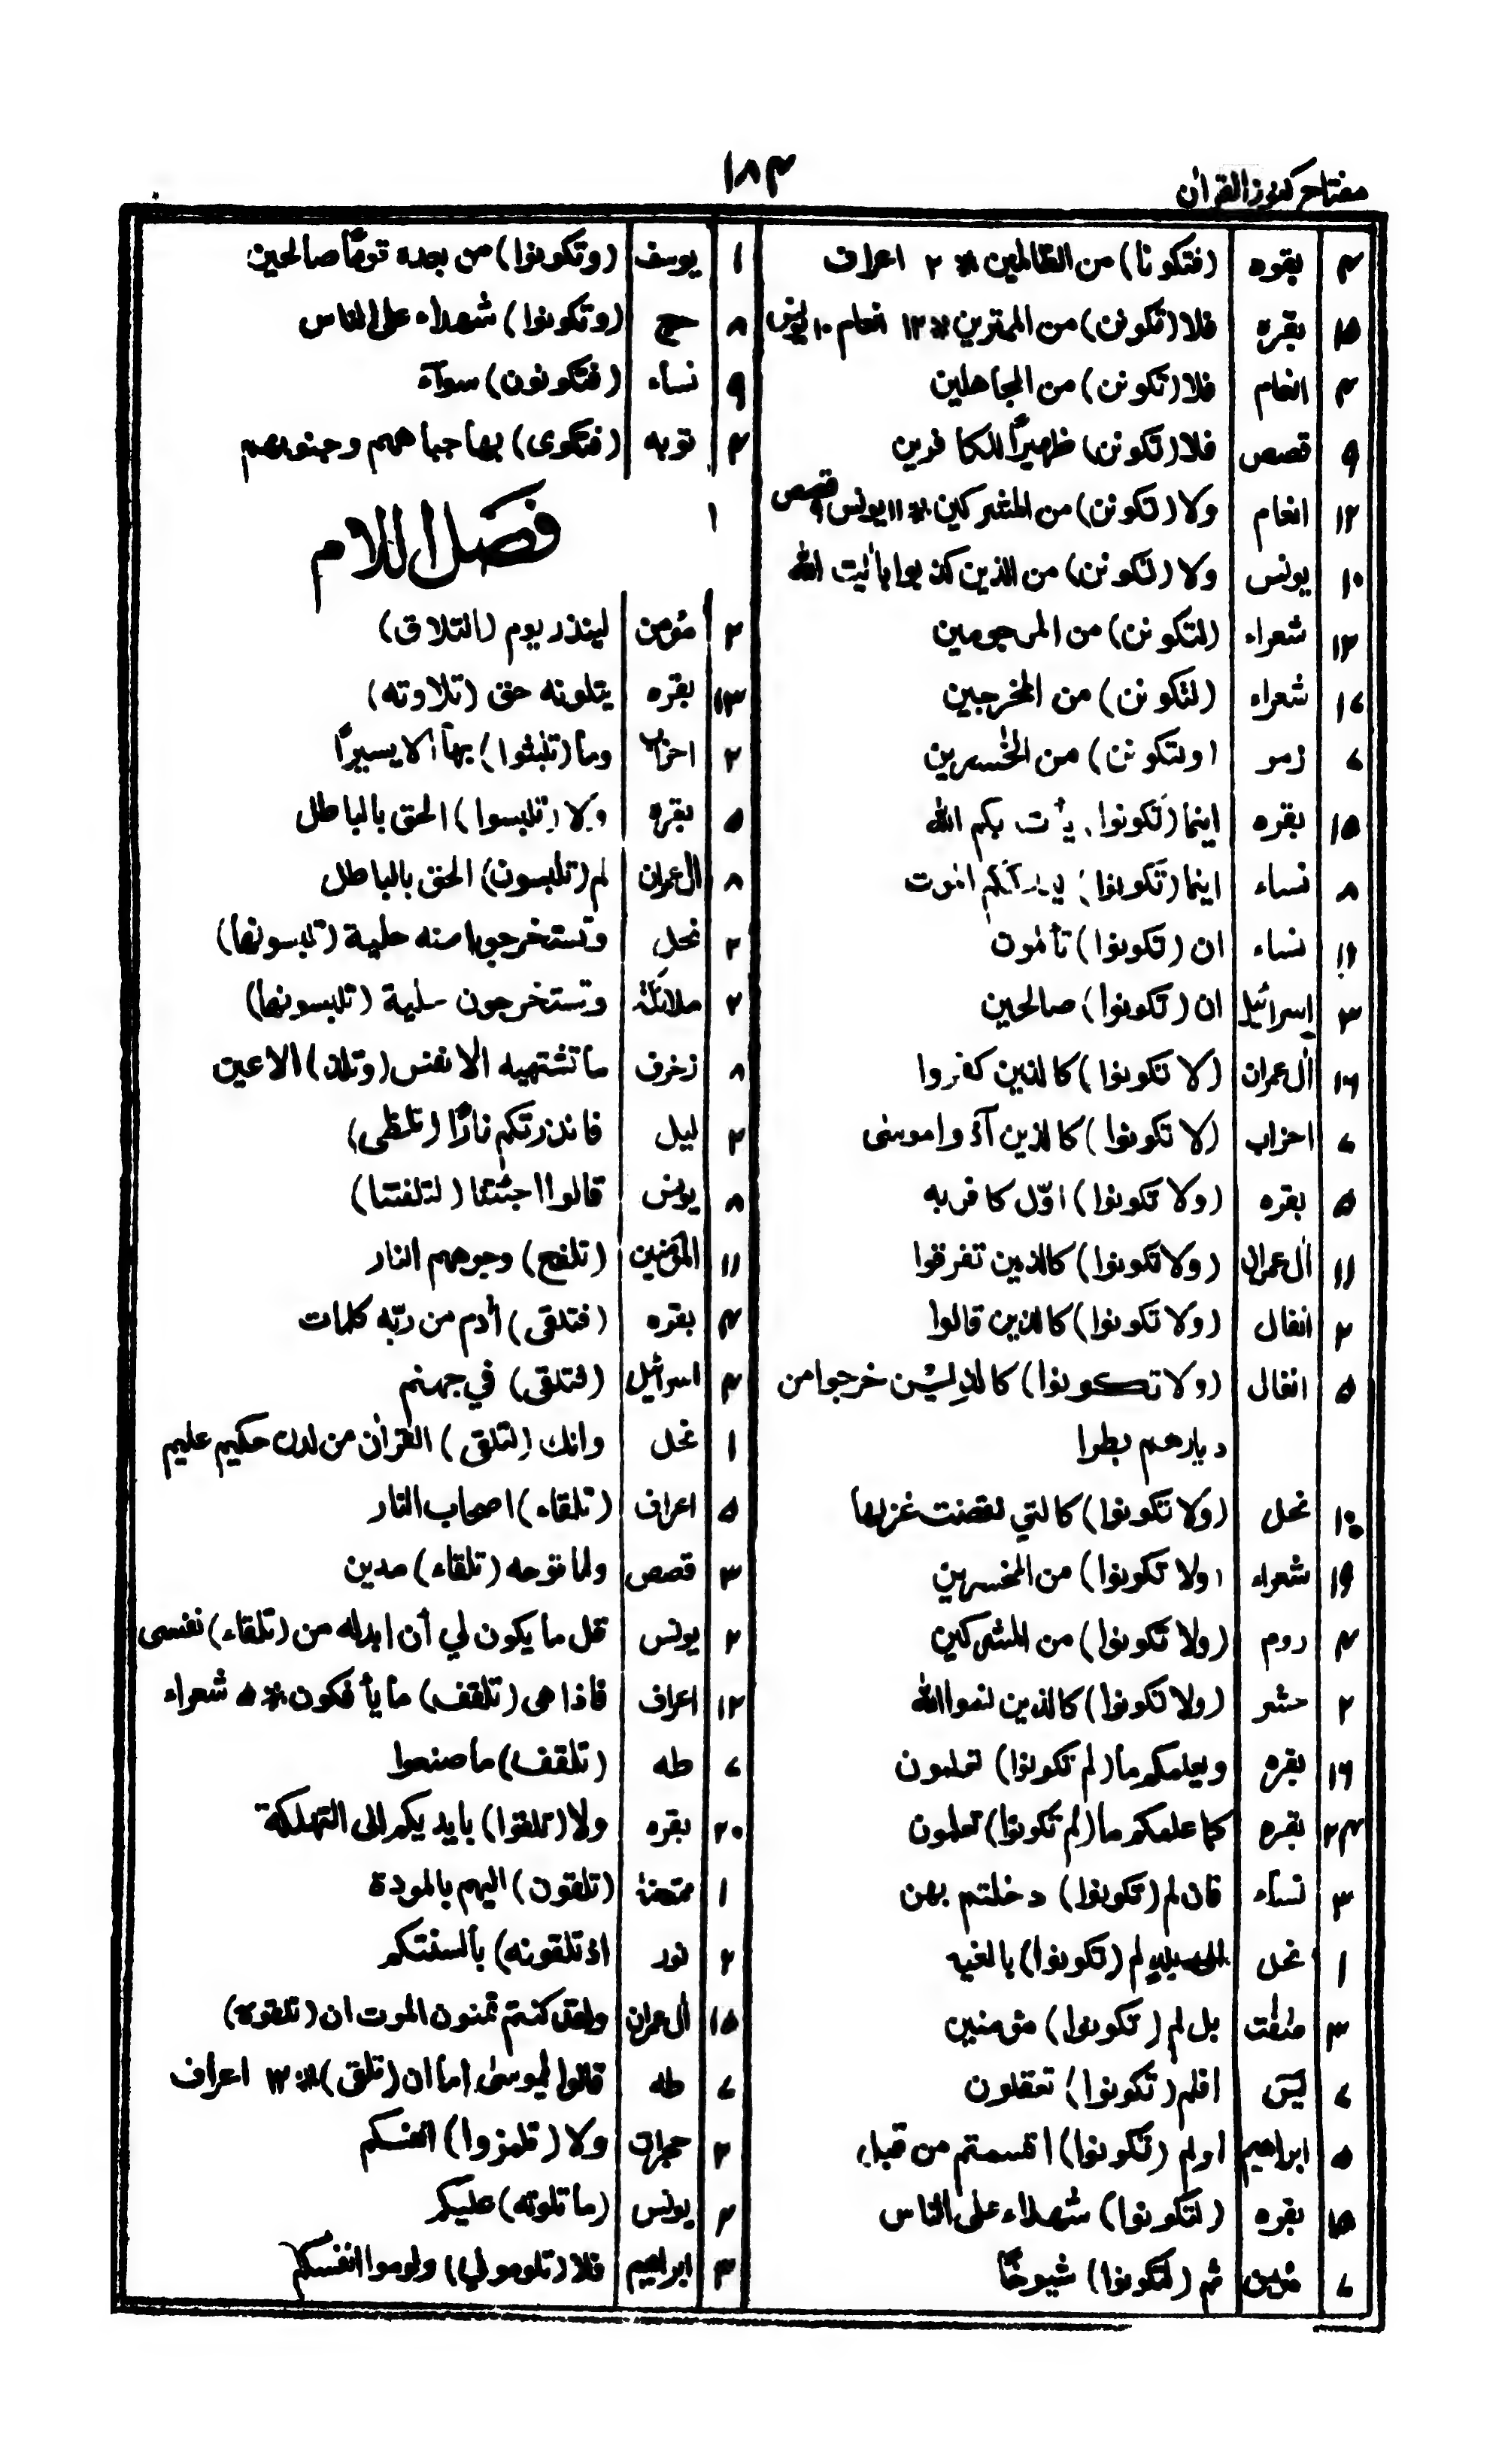 مفتاح كنوز القرآن
١٨۴
۴ بقره (فتكونا) من الظالمين * ٢ اعراف
١۵ بقره فلا (تكونن) من الممترين * ١٣ انعام ١٠ يونس
۴ انعام فلا (تكونن) من الجاهلين
٩ قصص فلا (تكونن) ظهيرًا للكافرين
١٢ انعام ولا (تكونن) من المشركين * ١١ يونس ٩ قصص
١٠ يونس ولا (تكونن) من الذين كذبوا بأيت الله
١٢ شعراء (لتكونن) من المرجومين
شعراء (لتكونن) من المخرجين
زمر (ولتكونن) من الخسرين
١۵ بقره اينما (تكونوا) يأت بكم الله
٨ نساء اينما (تكونوا) يدرككم الموت
١١ نساء ان (تكونوا) تألمون
٣ إسرائيل ان (تكونوا) صالحين
١٦ أل عمران (لا تكونوا) كالذين كفروا
احزاب (لا تكونوا) كالذين آذوا موسى
۵ بقره (ولا تكونوا) اوّل كافر به
١١ أل عمران (ولا تكونوا) كالذين تفرقوا
٢ انفال (ولا تكونوا) كالذين قالوا
۵ انفال (ولا تكونوا) كالذين خرجوا من
ديارهم بطرا
نحل (ولا تكونوا) كالتي نقضت غزلها
شعراء (ولا تكونوا) من المخسرين
۴ روم (ولا تكونوا) من المشركين
٢ حشر (ولا تكونوا) كالذين نسوا الله
بقره ويعلمكم ما (لم تكونوا) تعلمون
بقره كما علمكم ما (لم تكونوا) تعلمون
٣ نسآء فان لم (تكونوا) دخلتم بهن
١ نحل الى بلد لم (تكونوا) بالغيه
بل لم (تكونوا) مؤمنين
يٰسٓ افلم (تكونوا) تعقلون
ابراهيم اولم (تكونوا) اقسمتم من قبل
بقره (لتكونوا) شهداء على الناس
مؤمن ثم (لتكونوا) شيوخًا
١ يوسف (وتكونوا) من بعده قومًا صالحين
حج (وتكونوا) شهداء على الناس
٩ نساء (فتكونون) سوآء
توبه (فتكوى) بها جباههم وجنوبهم
١ فصل اللام
٢ مؤمن لينذر يوم (التلاق)
بقره يتلونه حق (تلاوته)
٢ احزاب وما (تلبثوا) بهآ الا يسيرًا
۵ بقره ولا (تلبسوا) الحق بالباطل
٨ أل عمران لم (تلبسون) الحق بالباطل
٢ نحل وتستخرجوا منه حلية (تلبسونها)
٢ ملائكة وتستخرجون حلية (تلبسونها)
زخرف ما تشتهيه الانفس (وتلذ) الاعين
ليل فانذرتكم نارًا (تلظى)
٨ يونس قالوا اجئتنا (لتلفتنا)
المؤمنين (تلفح) وجوههم النار
۴ بقره (فتلقى) أدم من ربّه كلمات
۴ اسرائيل (فتلقى) في جهنم
١ نحل وانك (لتلقى) القرأن من لدن حكيم عليم
۵ اعراف (تلقاء) اصحاب النار
٣ قصص ولما توجه (تلقاء) مدين
٢ يونس قل ما يكون لي أن ابدله من (تلقاء) نفسى
اعراف فاذا هى (تلقف) ما يأفكون * شعراء
طه (تلقف) ما صنعوا
بقره ولا (تلقوا) بايديكم الى التهلكة
١ ممتحنة (تلقون) اليهم بالمودة
٢ نور اذ تلقونه) بألسنتكم
أل عمران ولقد كنتم تمنون الموت ان (تلقوه)
طه قالوا ليموسى اما ان (تلقى) * ١٣ اعراف
٢ حجرات ولا (تلمزوا) انفسكم
٢ يونس (ما تلوته) عليكم
ابراهيم فلا (تلومولي) ولوموا انفسكم